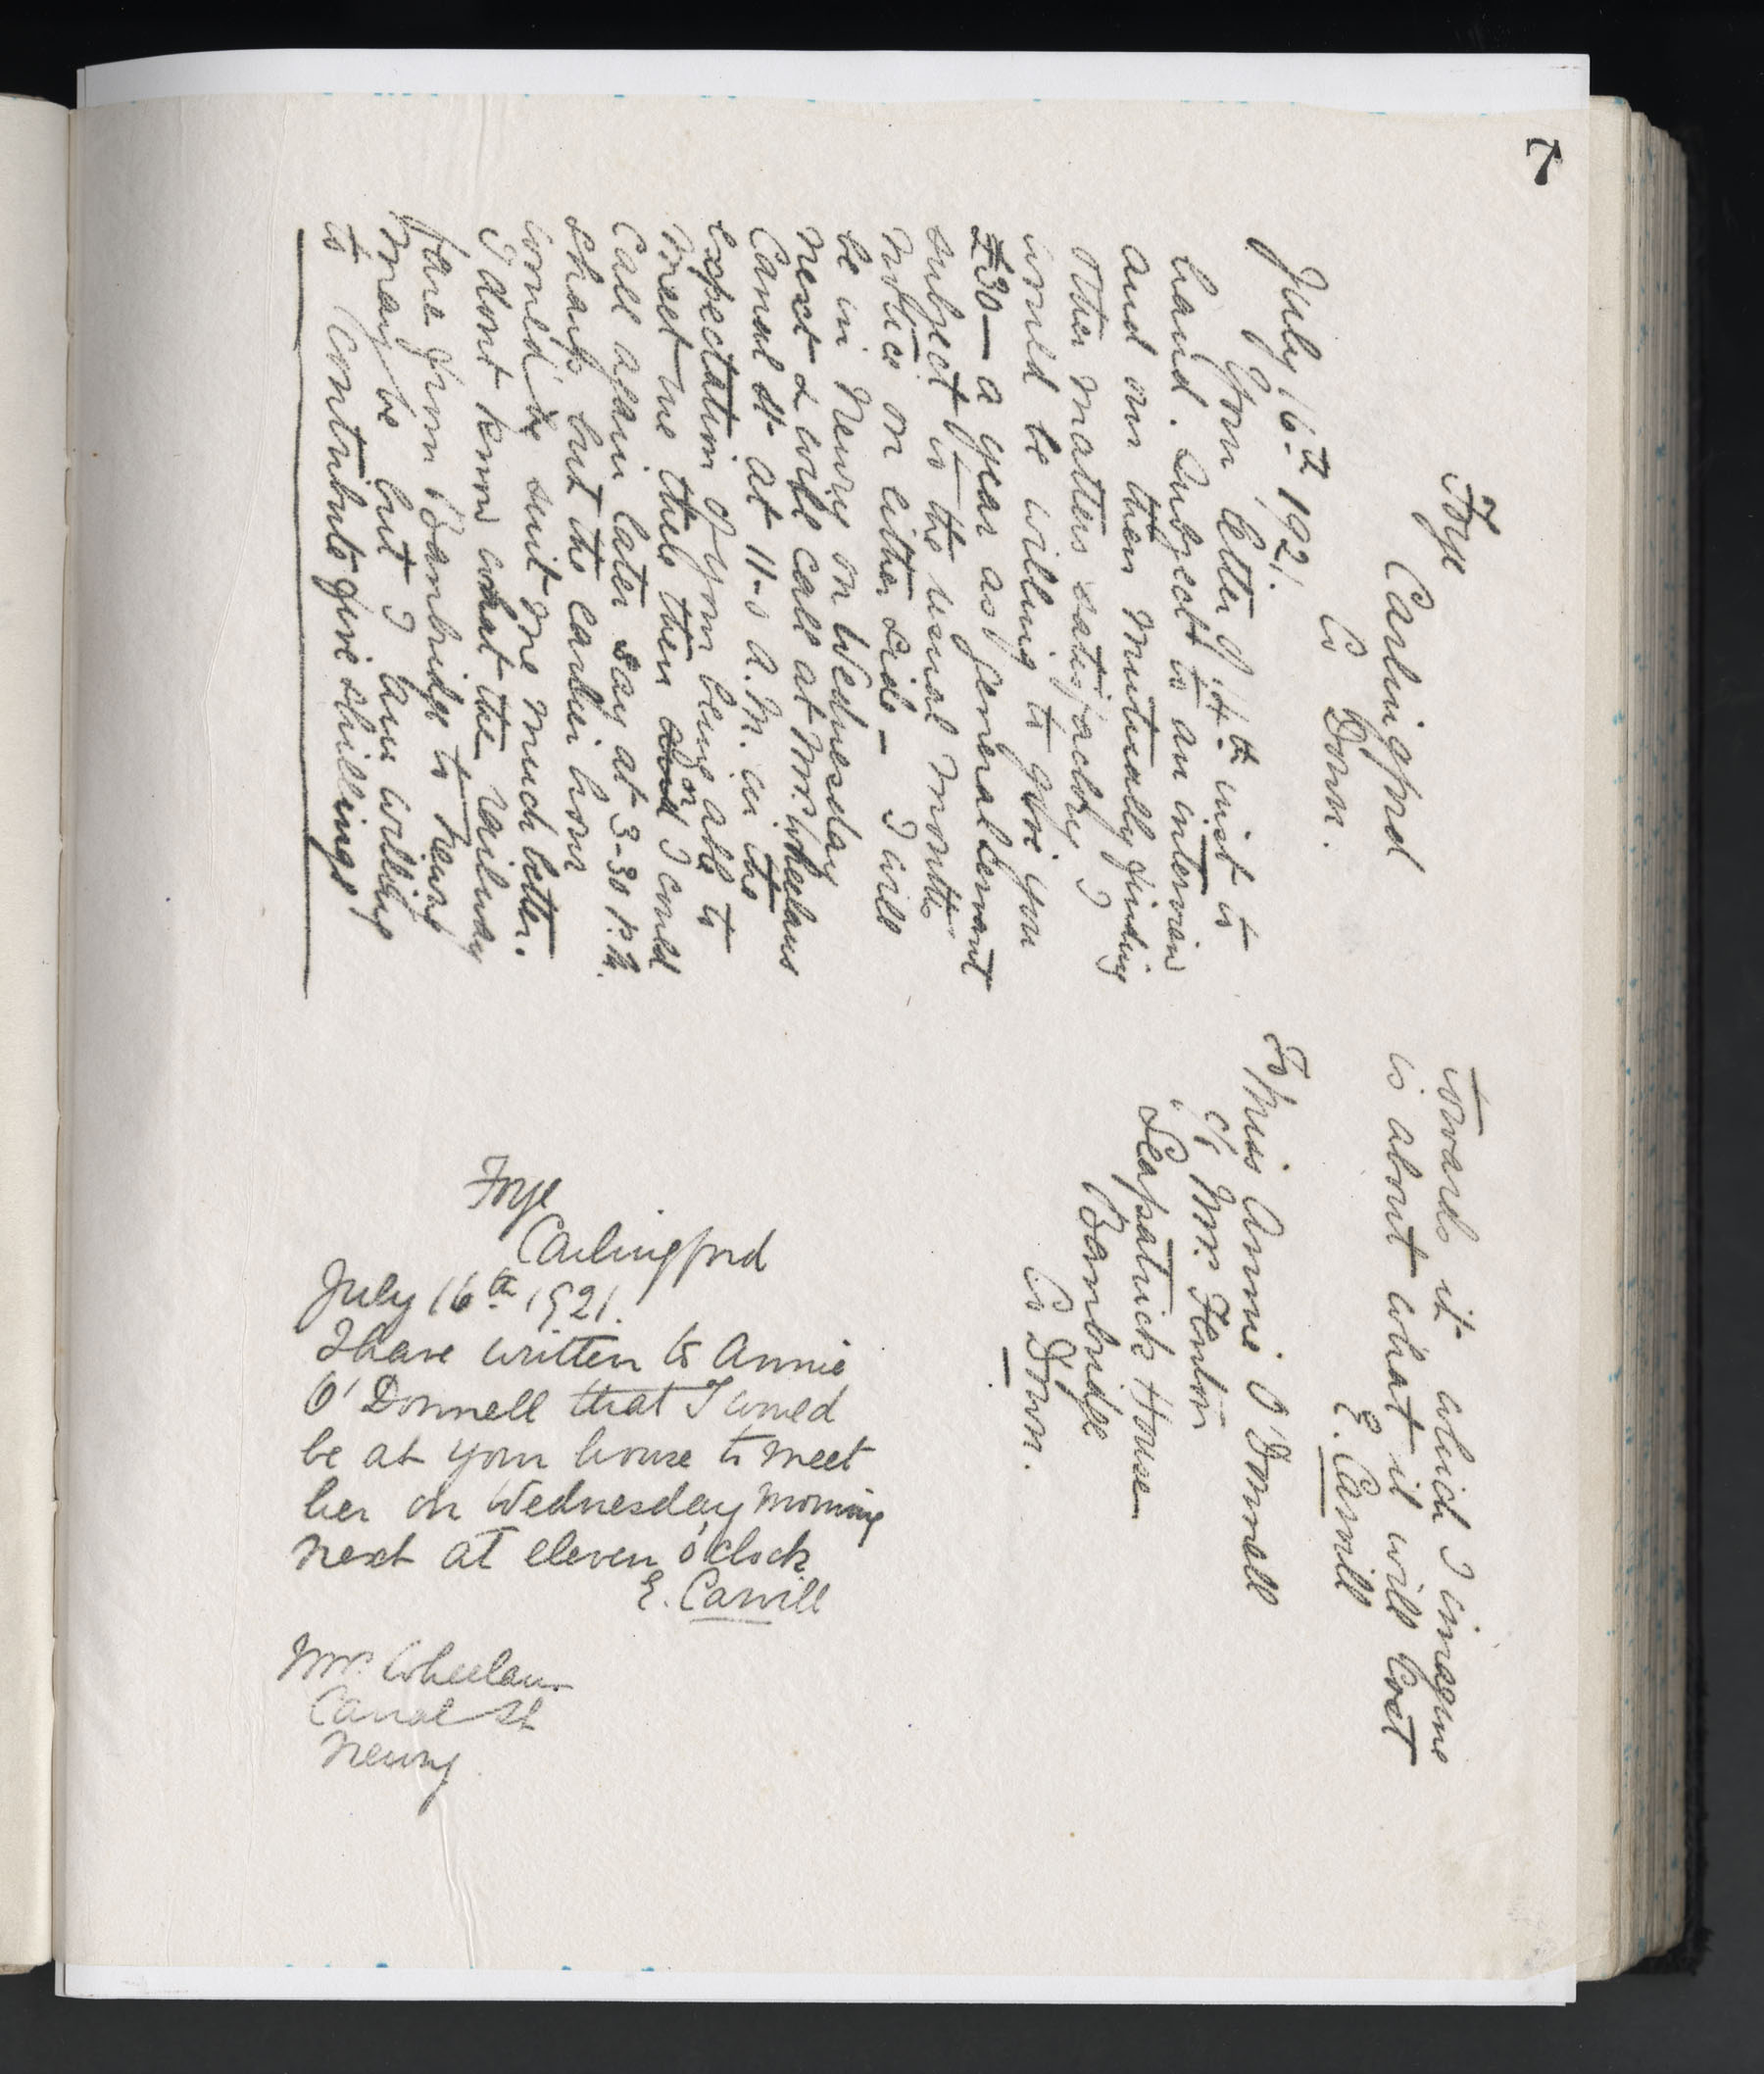 7
Foye
Carlingford
Co Down.
July 16th 1921.
Your letter of 14th inst is to
hand. Subject to an interview
and our then mutually finding
other matters satisfactory I
would be willing to give you
£30— a year as general servant
subject to the usual months
notice on either side — I will
be in Newry on Wednesday
next & will call at Mrs. Wheelans
Canal St at 11-0 A.M. in the
expectation of your being able to
meet me there then or I could
call again later say at 3-30 P.M.
sharp but the earlier hour
would suit me much better.
I dont know what the railway
fare from Banbridge to Newry
may be but I am willing
to contribute five shillings
towards it which I imagine
is about what it will cost
E. Carvill
To Miss Annie O'Donnell
c/o Mrs. Fenton
Seapatrick House
Banbridge
Co Down.
Foye
Carlingford
July 16th 1921.
I have written to Annie
O'Donnell that I would
be at your house to meet
her on Wednesday morning
next at eleven o'clock
E. Carvill
Mrs. Wheelan
Canal St
Newry